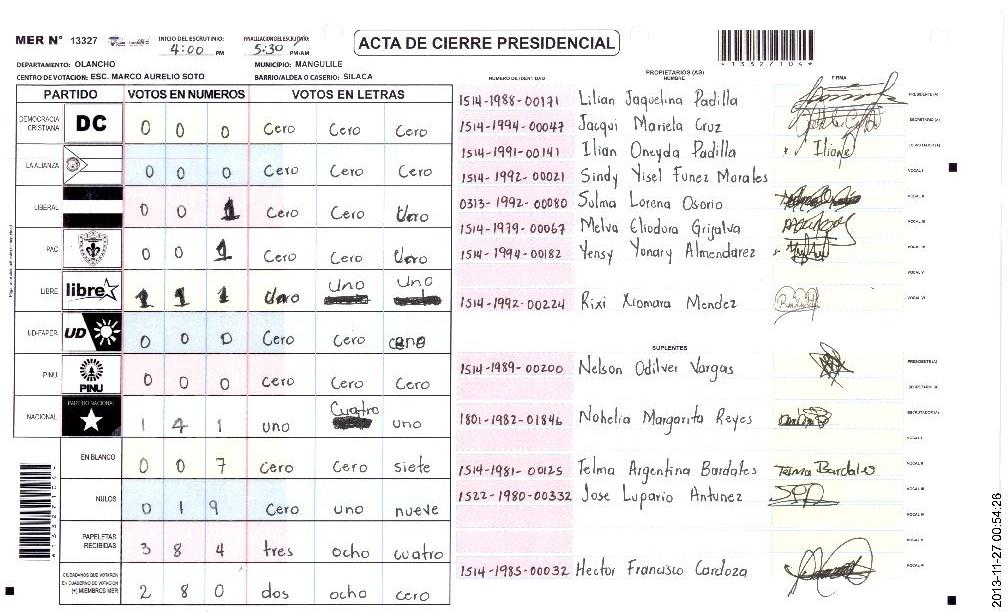 MER N° 13327 INICIO DEL ESCRUTINIO: 4:00 PM FINALIZACION DEL ESCRUTINIO: 5:30 PM/AM
ACTA DE CIERRE PRESIDENCIAL
*13327104*
DEPARTAMENTO: OLANCHO MUNICIPIO: MANGULILE
CENTRO DE VOTACION: ESC. MARCO AURELIO SOTO BARRIO/ALDEA O CASERIO: SILACA
PARTIDO VOTOS EN NUMEROS VOTOS EN LETRAS
DEMOCRACIA CRISTIANA DC 0 0 0 Cero Cero Cero
LA ALIANZA 0 0 0 Cero Cero Cero
LIBERAL 0 0 1 Cero Cero Uno
PAC 0 0 1 Cero Cero Uno
LIBRE libre 1 1 1 Uno Uno Uno
UD-FAPER UD 0 0 0 Cero Cero cero
PINU PINU 0 0 0 Cero Cero Cero
NACIONAL PARTIDO NACIONAL 1 4 1 uno Cuatro uno
EN BLANCO 0 0 7 Cero Cero siete
NULOS 0 1 9 Cero uno nueve
PAPELETAS RECIBIDAS 3 8 4 tres ocho cuatro
CIUDADANOS QUE VOTARON EN CUADERNO DE VOTACION (+) MIEMBROS MER 2 8 0 dos ocho cero
PROPIETARIOS (AS)
NUMERO DE IDENTIDAD NOMBRE FIRMA
1514-1988-00171 Lilian Jaquelina Padilla PRESIDENTE(A)
1514-1994-00047 Jacqui Mariela Cruz SECRETARIO (A)
1514-1991-00141 Ilian Oneyda Padilla Iliane ESCRUTADOR(A)
1514-1992-00021 Sindy Yisel Funez Morales VOCAL I
0313-1992-00080 Sulma Lorena Osorio VOCAL II
1514-1979-00067 Melva Eliodora Grijalva VOCAL III
1514-1994-00182 Yensy Yonary Almendarez VOCAL IV
VOCAL V
1514-1992-00224 Rixi Xiomara Mendez VOCAL VI
SUPLENTES
1514-1989-00200 Nelson Odilver Vargas PRESIDENTE(A)
SECRETARIO (A)
1801-1982-01846 Nohelia Margarita Reyes ESCRUTADOR(A)
VOCAL I
1514-1981-00125 Telma Argentina Bardales Telma Bardales VOCAL II
1522-1980-00332 Jose Lupario Antunez VOCAL III
VOCAL IV
VOCAL V
1514-1985-00032 Hector Francisco Cardoza VOCAL VI
2013-11-27 00:54:26